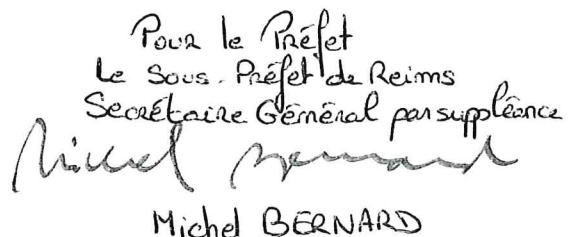 Pour le Préfet
Le Sous-Préfet de Reims
Secrétaire Général par suppléance
Michel Bernard
Michel BERNARD